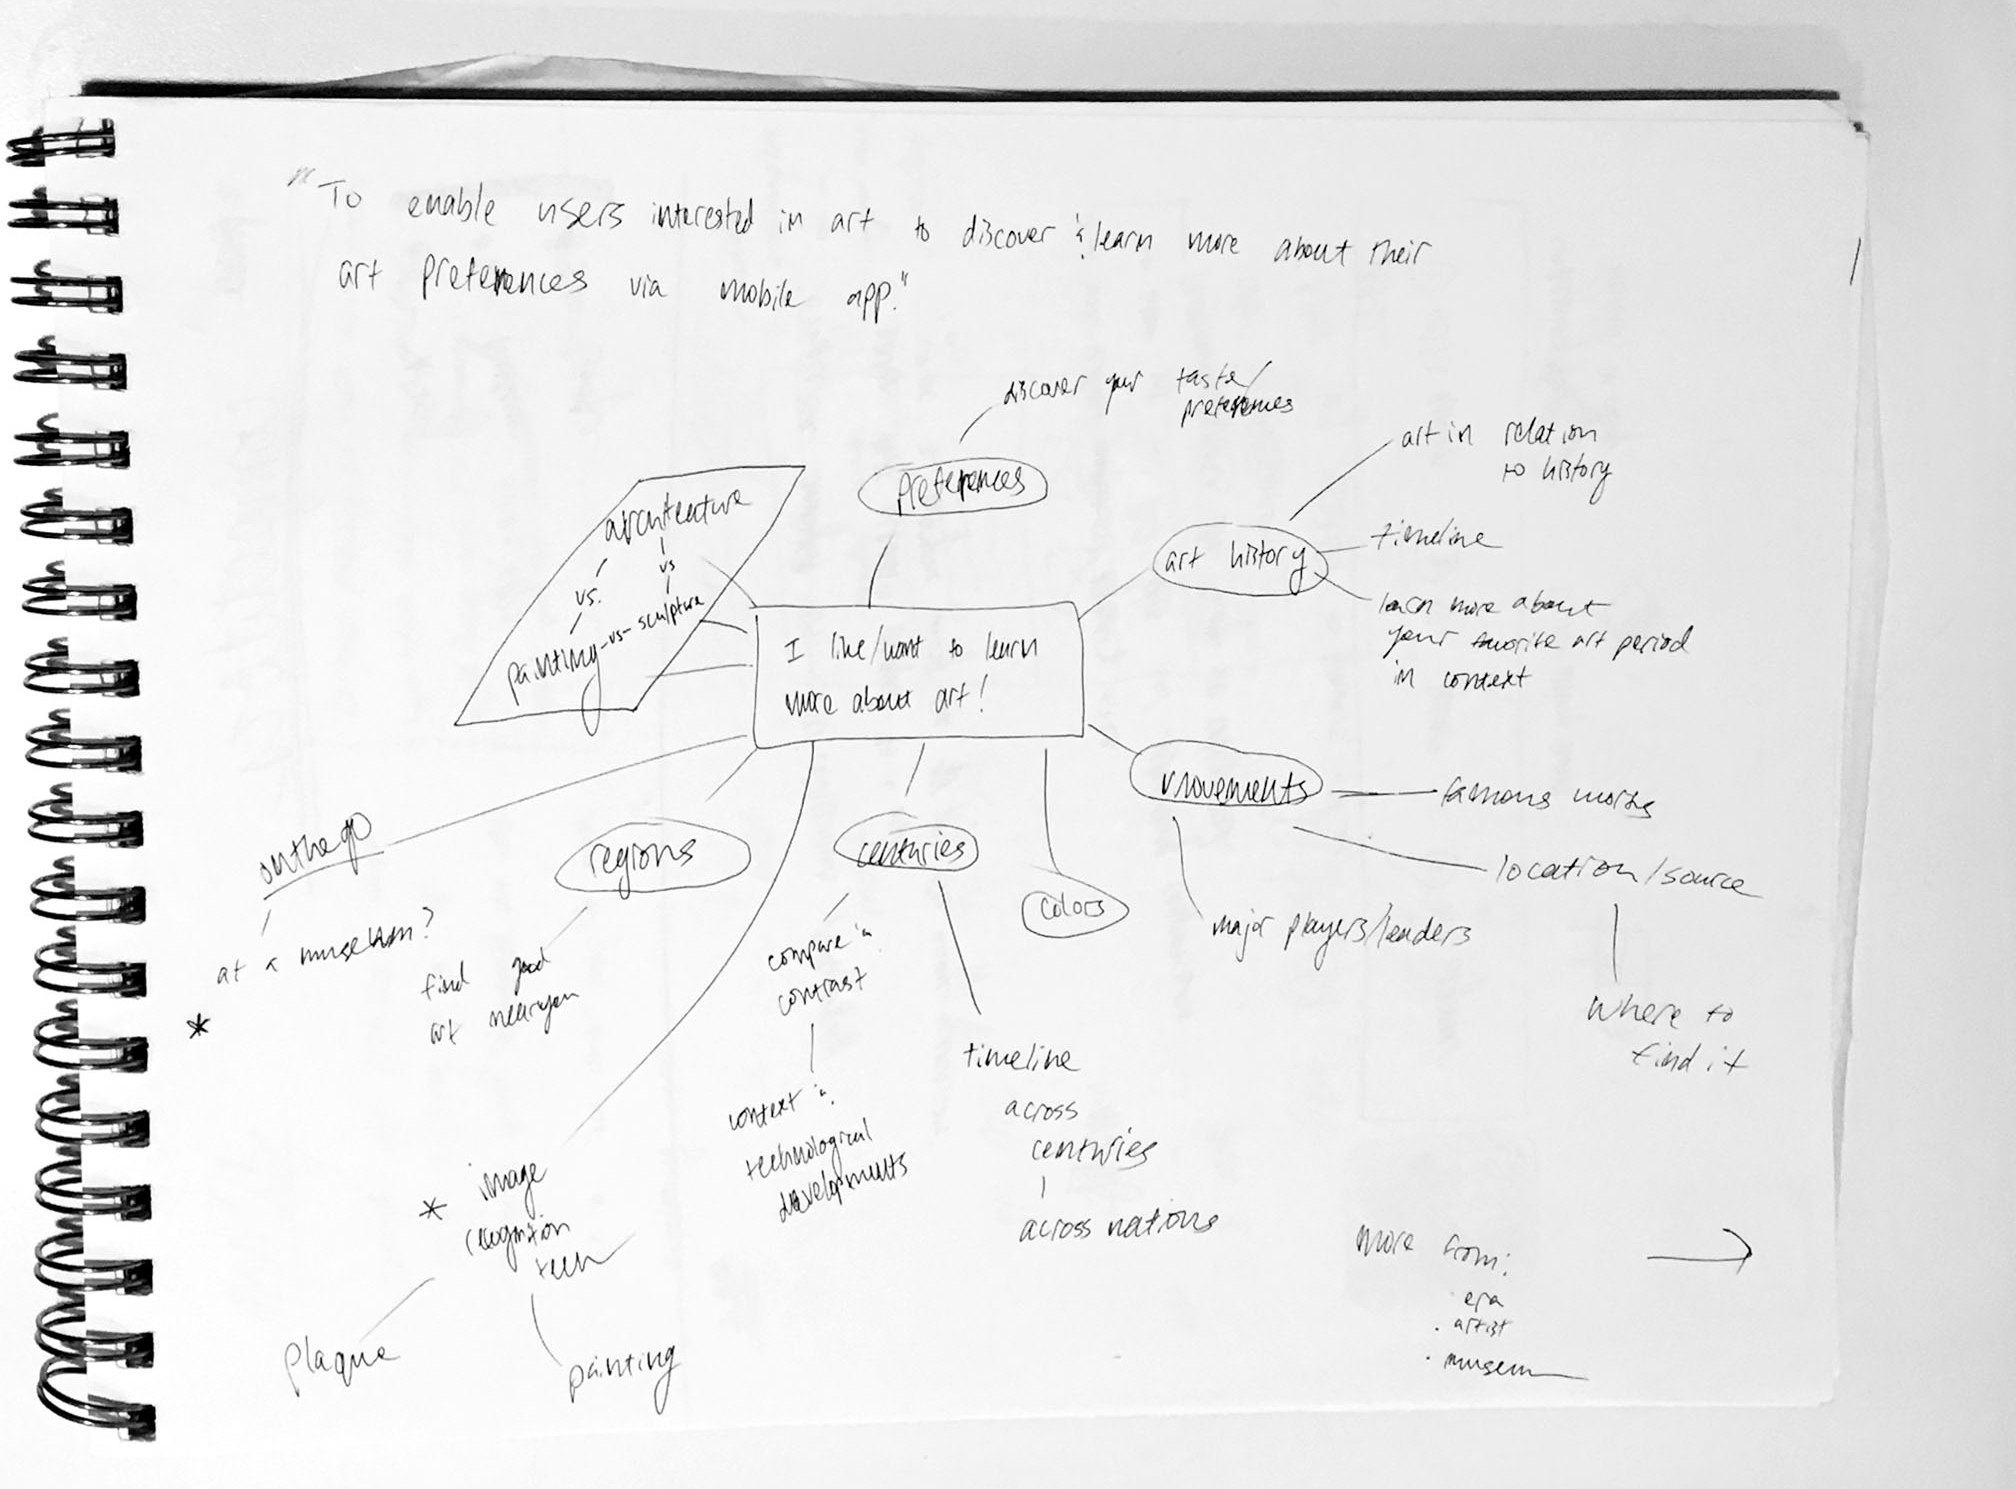 "To enable users interested in art to discover & learn more about their
art preferences via mobile app."
discover your taste/
preferences
preferences
art in relation
to history
art history
timeline
learn more about
your favorite art period
in context
architecture
vs.
vs
painting -vs- sculpture
I like/want to learn
more about art!
movements
famous works
location/source
where to
find it
major players/leaders
on the go
at a museum?
*
regions
find good
art near you
centuries
compare &
contrast
context &
technological
developments
timeline
across
centuries
across nations
colors
* image
recognition
tech
plaque
painting
more from:
· era
· artist
· museum